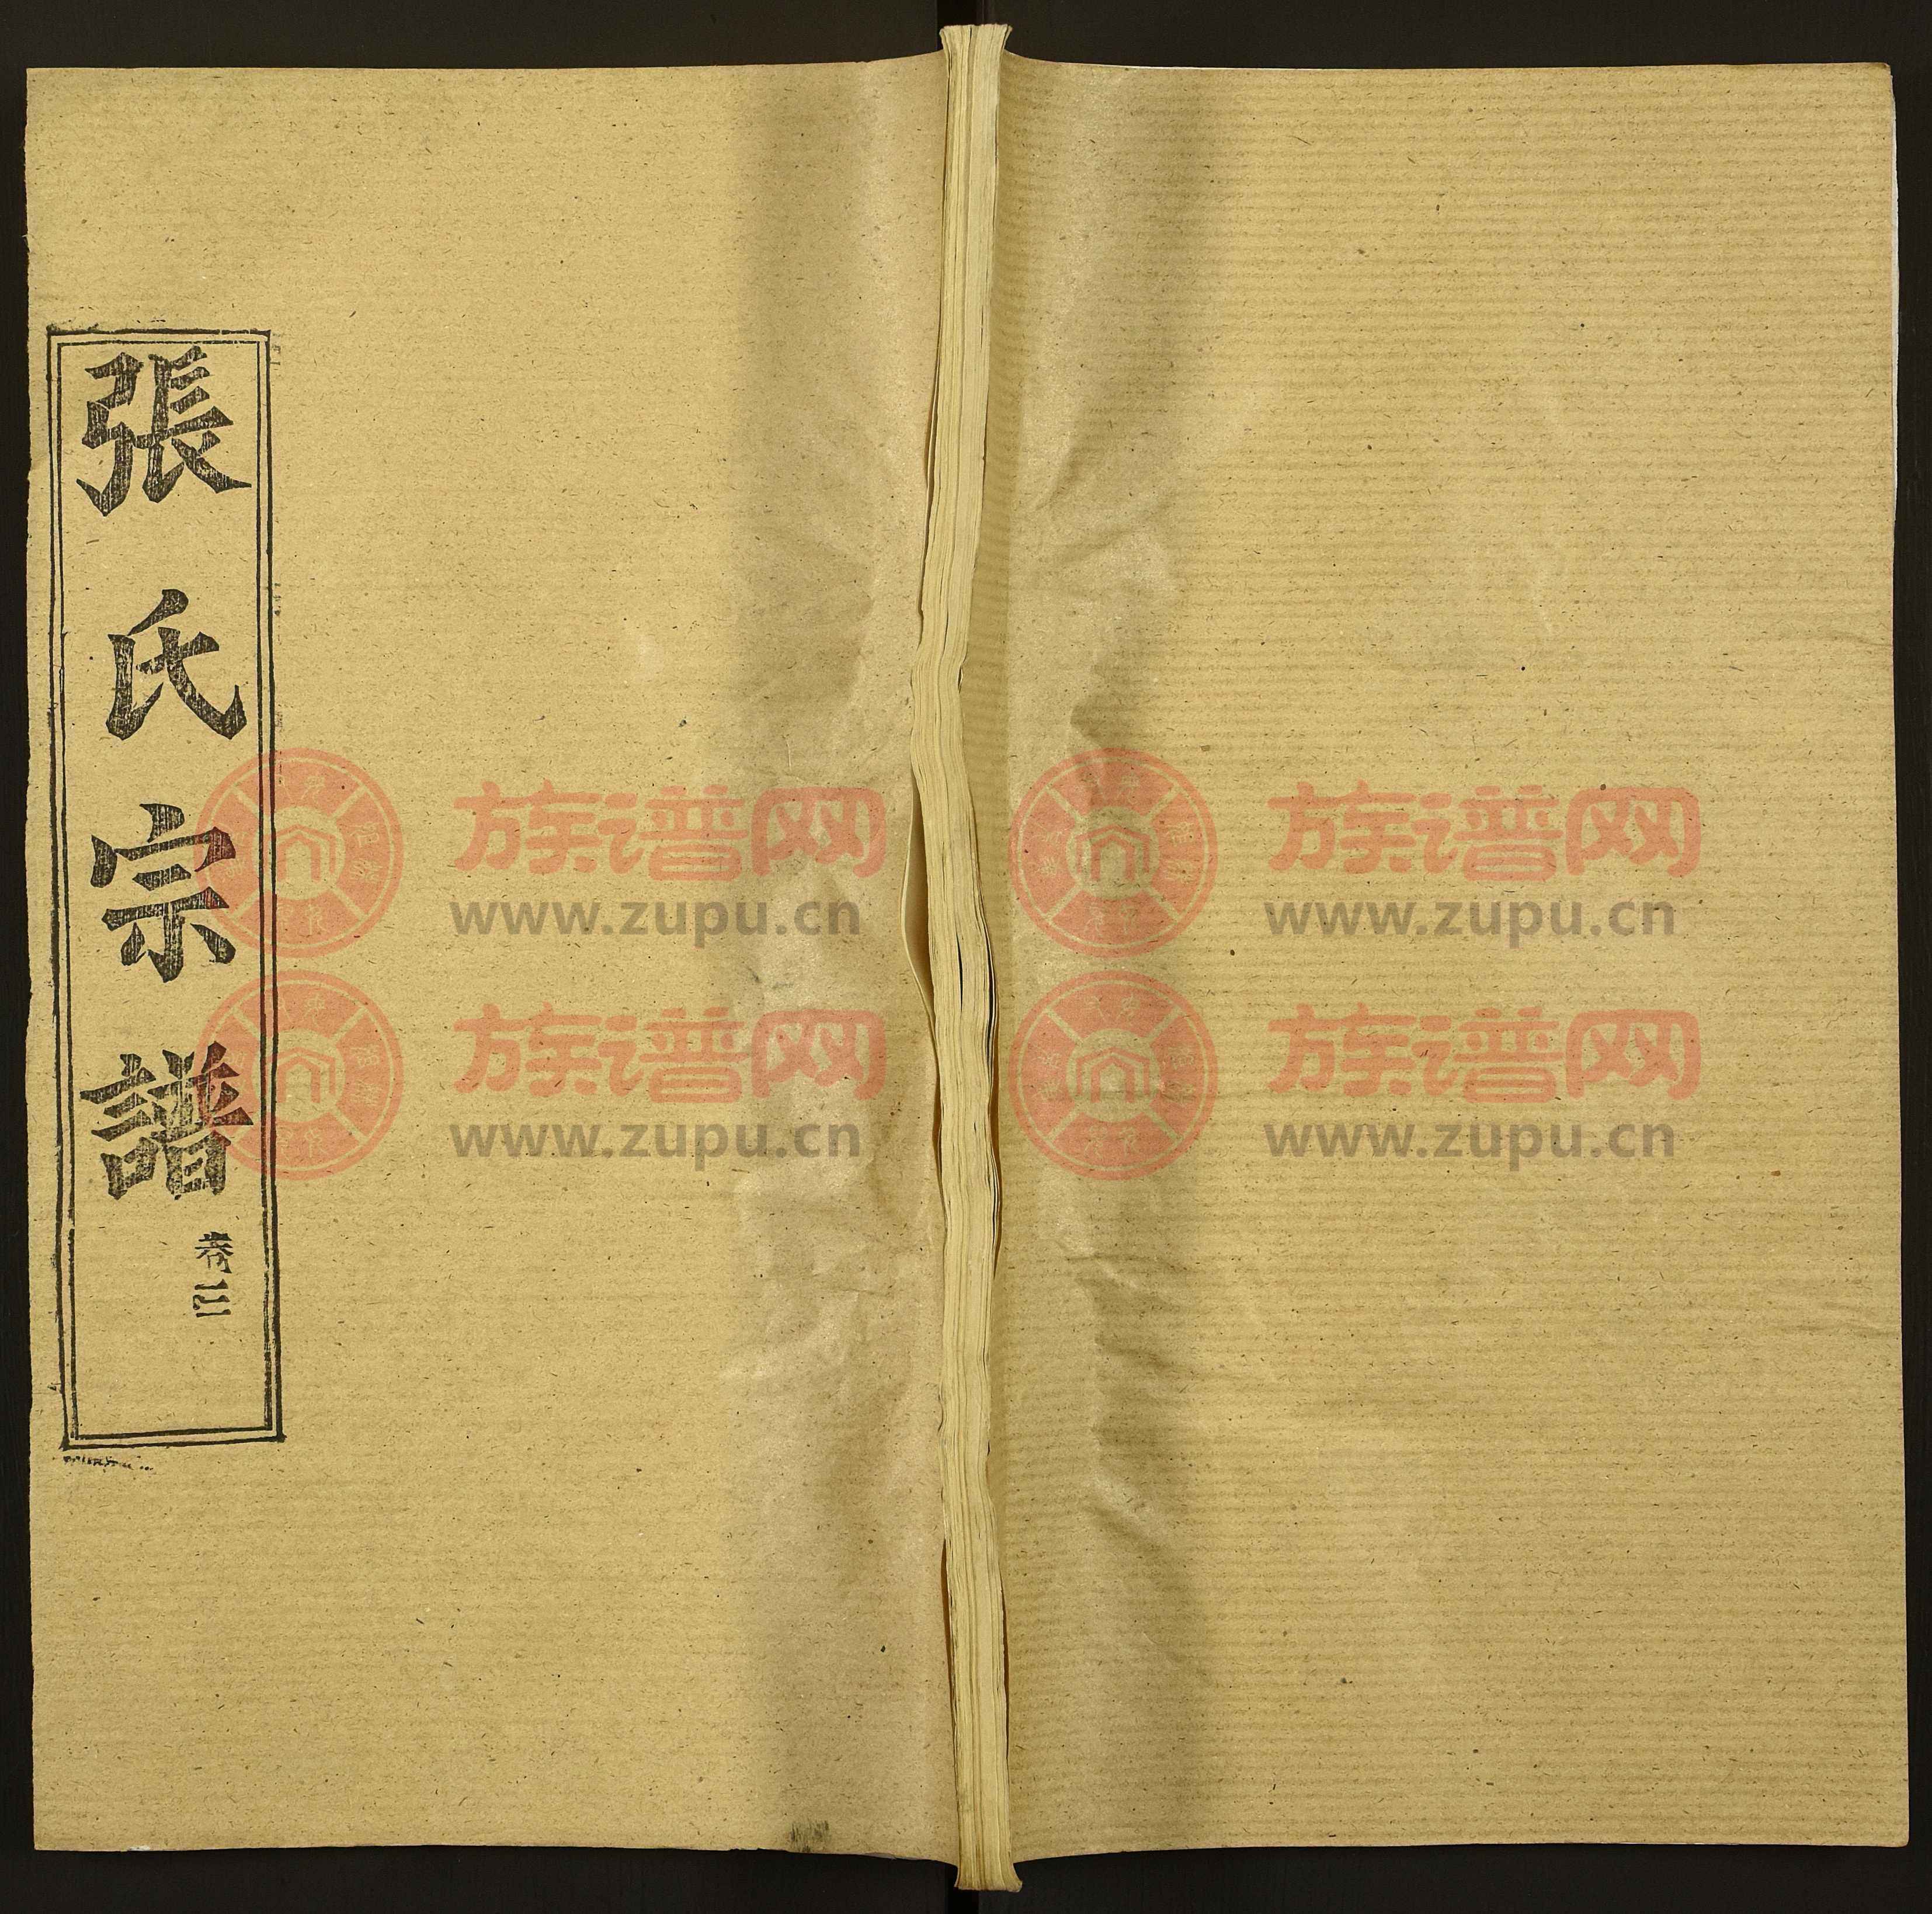 張氏宗譜
卷三
族谱网
www.zupu.cn
族谱网
www.zupu.cn
族谱网
www.zupu.cn
族谱网
www.zupu.cn